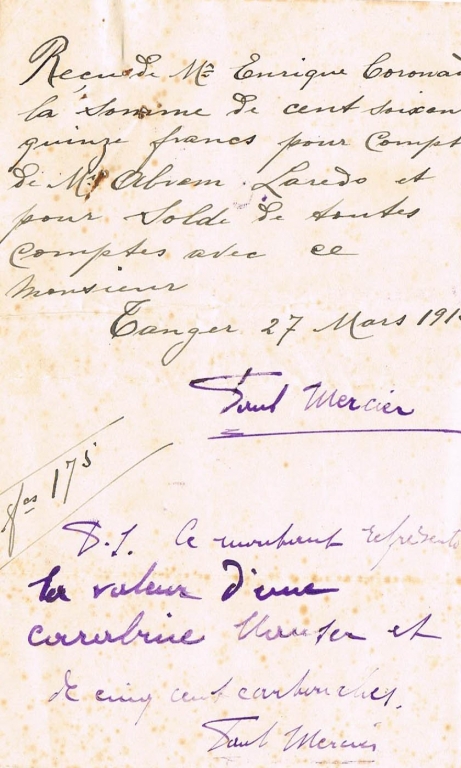 Reçu de Mr Enrique Corona
la Somme de cent soixan
quinze francs pour Compt
de Mr Abrem. Laredo et
pour Solde de toutes
Comptes avec ce
Monsieur
Tanger 27 Mars 191
Paul Mercier
fcs 175
P.S. Ce montant représente
la valeur d'une
carrabine Mauser et
de cinq cent cartouches.
Paul Mercier